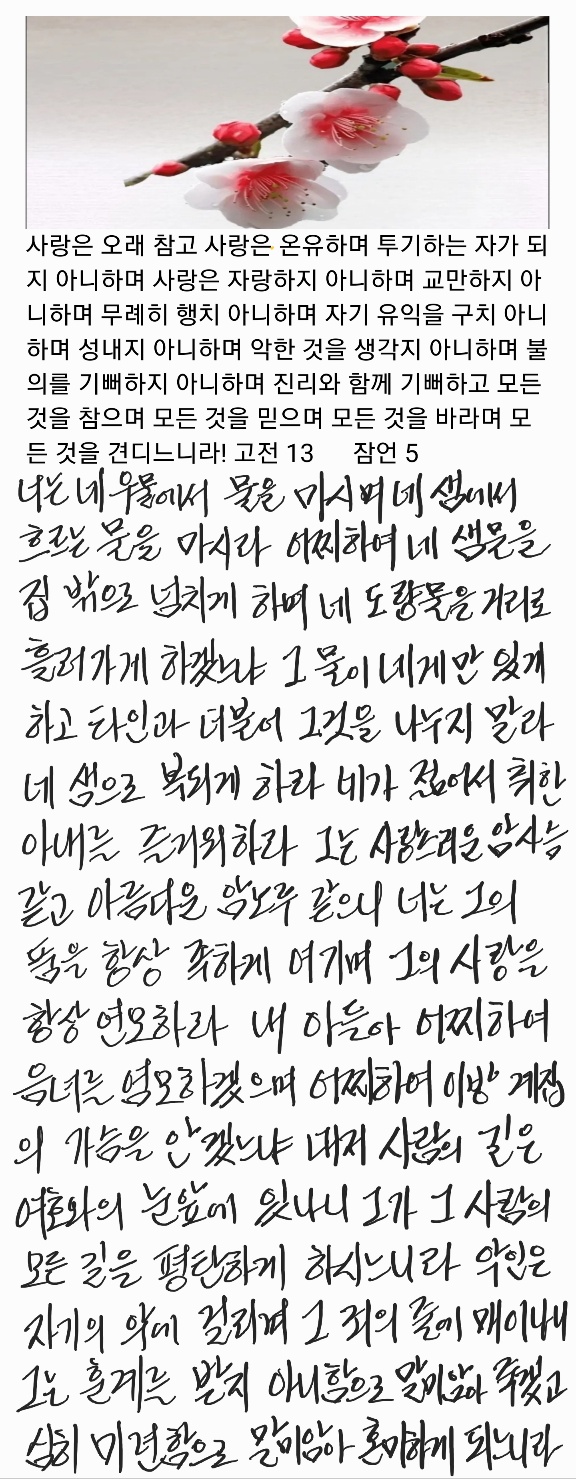 사랑은 오래 참고 사랑은 온유하며 투기하는 자가 되
지 아니하며 사랑은 자랑하지 아니하며 교만하지 아
니하며 무례히 행치 아니하며 자기 유익을 구치 아니
하며 성내지 아니하며 악한 것을 생각지 아니하며 불
의를 기뻐하지 아니하며 진리와 함께 기뻐하고 모든
것을 참으며 모든 것을 믿으며 모든 것을 바라며 모
든 것을 견디느니라! 고전 13 잠언 5
너는 네 우물에서 물을 마시며 네 샘에서
흐르는 물을 마시라 어찌하여 네 샘물을
집 밖으로 넘치게 하며 네 도랑물을 거리로
흘러가게 하겠느냐 그 물이 네게만 있게
하고 타인과 더불어 그것을 나누지 말라
네 샘으로 복되게 하라 네가 젊어서 취한
아내를 즐거워하라 그는 사랑스러운 암사슴
같고 아름다운 암노루 같으니 너는 그의
품을 항상 족하게 여기며 그의 사랑을
항상 연모하라 내 아들아 어찌하여
음녀를 연모하겠으며 어찌하여 이방 계집
의 가슴을 안겠느냐 대저 사람의 길은
여호와의 눈앞에 있나니 그가 그 사람의
모든 길을 평탄하게 하시느니라 악인은
자기의 악에 걸리며 그 죄의 줄에 매이나니
그는 훈계를 받지 아니함으로 말미암아 죽겠고
심히 미련함으로 말미암아 혼미하게 되느니라